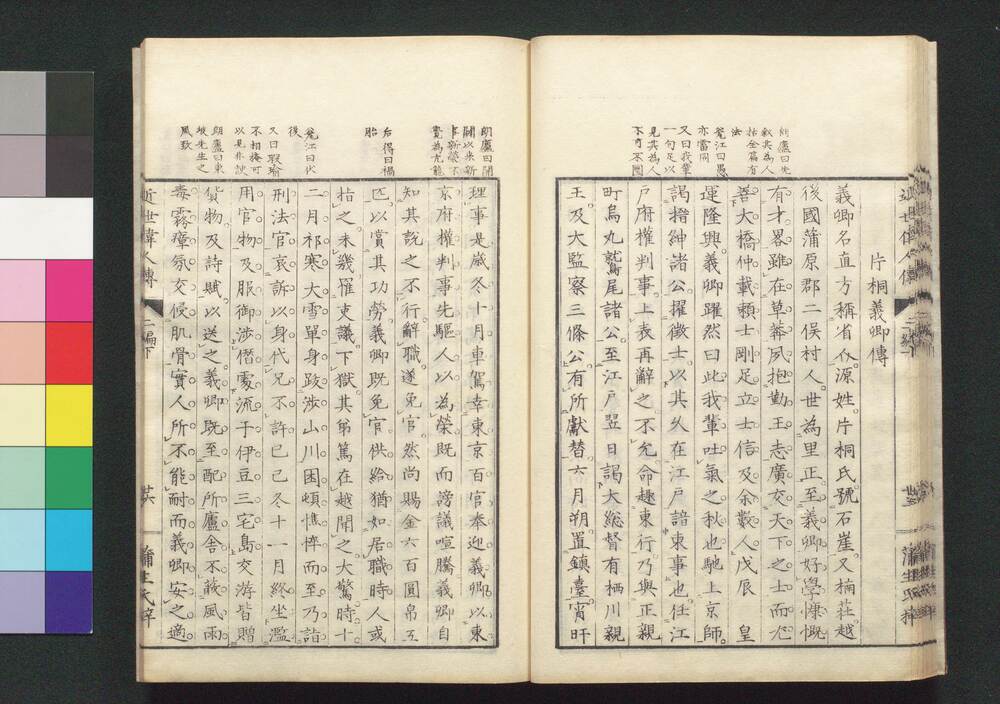 片桐義卿傳
義卿名直方稱省介源姓片桐氏號石崖又楠莊越
後國蒲原郡二俣村人世為里正至義卿好學慷慨
有才畧雖在草莽夙抱勤王志廣交天下之士而尤
善大橋仲載頼士剛足立士信及余數人戊辰 皇
運隆興義卿躍然曰此我輩吐氣之秋也馳上京師
謁搢紳諸公擢徵士以其久在江戸諳東事也任江
戸府權判事上表再辭之不允命趣東行乃與正親
町烏丸鷲尾諸公至江戸翌日謁大総督有栖川親
王及大監察三條公有所獻替六月朔置鎮臺宵旰
朗廬曰先
敘其為人
括全篇有
法
鴬江曰愚
亦當同
又曰我輩
一句足以
見其為人
不可不圏
近世偉人傳
蒲生氏梓
理事是歳冬十月車駕幸東京百官奉迎義卿以東
京府權判事先驅人以為榮既而謗議喧騰義卿自
知其説之不行辭職遂免官然尚賜金六百圓帛五
匹以賞其功勞義卿既免官供給猶如居職時人或
指之未幾罹吏議下獄其弟篤在越聞之大驚時十
二月祁寒大雪單身跋渉山川困頓憔悴而至乃詣
刑法官哀訴以身代兄不許己巳冬十一月終坐濫
用官物及服御渉僭處流于伊豆三宅島交游皆贈
貨物及詩賦以送之義卿既至配所廬舎不蔽風雨
毒霧瘴氛交侵肌骨實人所不能耐而義卿安之適
朗廬曰開
關以來新
事新榮不
覺為尤龍
右得曰禍
胎
鴬江曰代
後
又曰瑕瑜
不相掩可
以見非諛
朗廬曰東
坡先生之
風致
近世偉人傳
二編下
廿六
蒲生氏梓